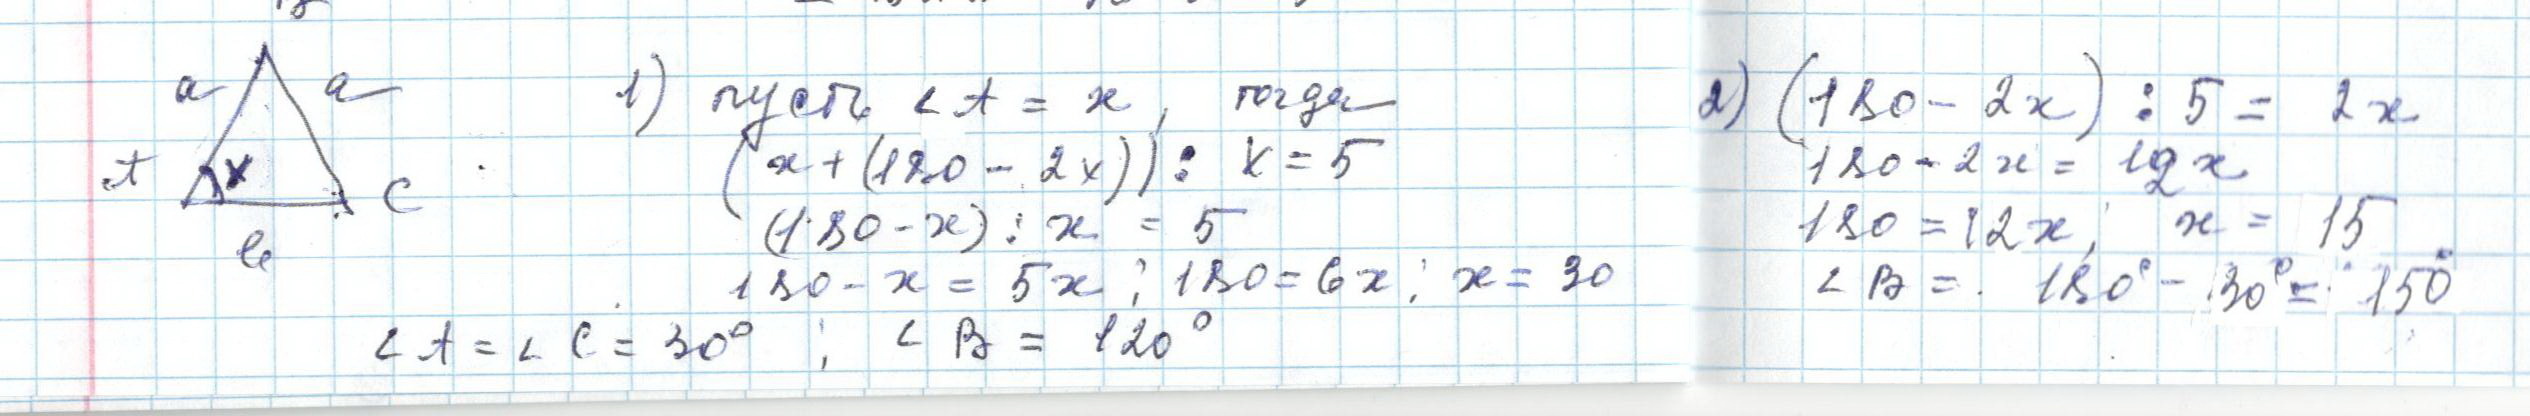 a a
A x C
в
1) пусть ∠A = x, тогда
(x + (180 - 2x)) : x = 5
(180 - x) : x = 5
180 - x = 5x; 180 = 6x; x = 30
∠A = ∠C = 30° ; ∠B = 120°
2) (180 - 2x) : 5 = 2x
180 - 2x = 10x
180 = 12x; x = 15
∠B = 180° - 30° = 150°